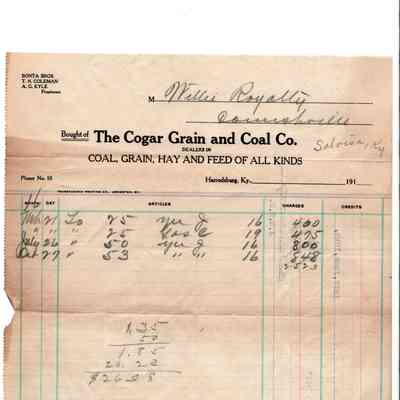 BONTA BROS
T. N. COLEMAN
A. G. KYLE
Proprietors
M Willie Royalty
Cornishville
Bought of The Cogar Grain and Coal Co.
Salvisa, Ky
DEALERS IN
COAL, GRAIN, HAY AND FEED OF ALL KINDS
Phone No. 15
Harrodsburg, Ky., 191
MONTH DAY ARTICLES CHARGES CREDITS
21 To 25 16 400
" " " 25 19 475
July 26 " 50 16 800
Oct 27 " 53 " " 16 848
2523
1.35
50
1.85
$26